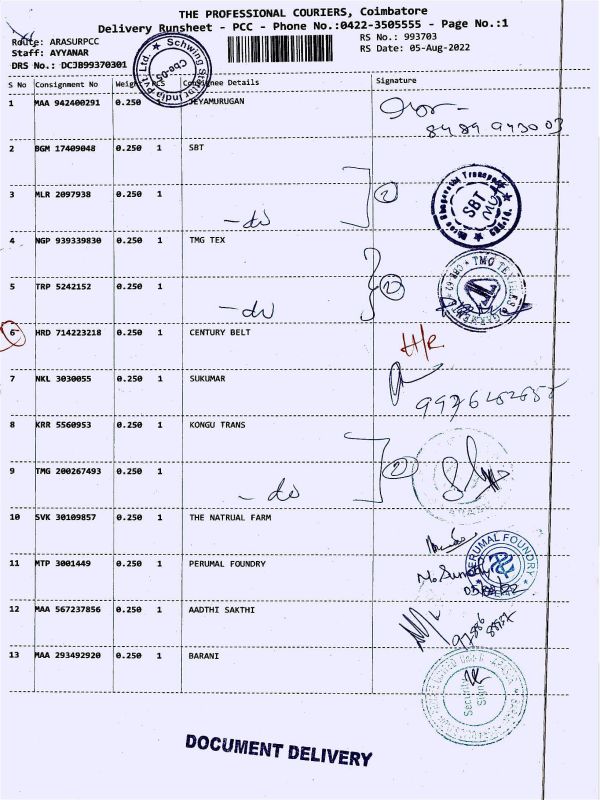 THE PROFESSIONAL COURIERS, Coimbatore
Delivery Runsheet - PCC - Phone No.:0422-3505555 - Page No.:1
Route: ARASURPCC
RS No.: 993703
Staff: AYYANAR
RS Date: 05-Aug-2022
DRS No.: DCJB99370301
Schwing Stetter India Pvt. Ltd.
Cbe-05
S No Consignment No Weight PCS Consignee Details Signature
1 MAA 942400291 0.250 JEYAMURUGAN
2 BGM 17409048 0.250 1 SBT
3 MLR 2097938 0.250 1
- do
2
SBT
4 NGP 939339830 0.250 1 TMG TEX
5 TRP 5242152 0.250 1
- do
2
6 HRD 714223218 0.250 1 CENTURY BELT
H/R
7 NKL 3030055 0.250 1 SUKUMAR
8 KRR 5560953 0.250 1 KONGU TRANS
9 TMG 200267493 0.250 1
- do
2
10 SVK 30109857 0.250 1 THE NATRUAL FARM
11 MTP 3001449 0.250 1 PERUMAL FOUNDRY
PERUMAL FOUNDRY
12 MAA 567237856 0.250 1 AADTHI SAKTHI
13 MAA 293492920 0.250 1 BARANI
Security
Sign
DOCUMENT DELIVERY